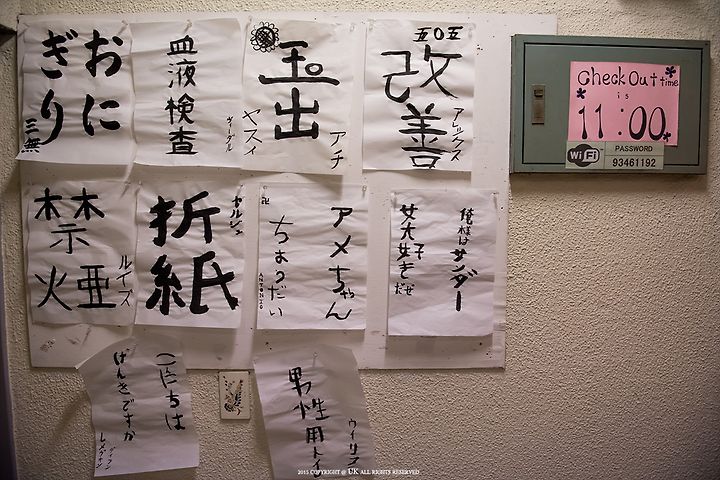 おに
ぎり
三無
血液検査
玉出
アチ
ヤスイ
五〇五
改善
アレックス
Check Out time
is
11:00
WiFi
PASSWORD
93461192
禁
火亜
ルイズ
折紙
アメちゃん
ちょうだい
卍
ANTONIO
俺様はサンダー
女大好きだぜ
こにちは
げんきですか
男性用トイ
2015 COPYRIGHT @ UK ALL RIGHTS RESERVED